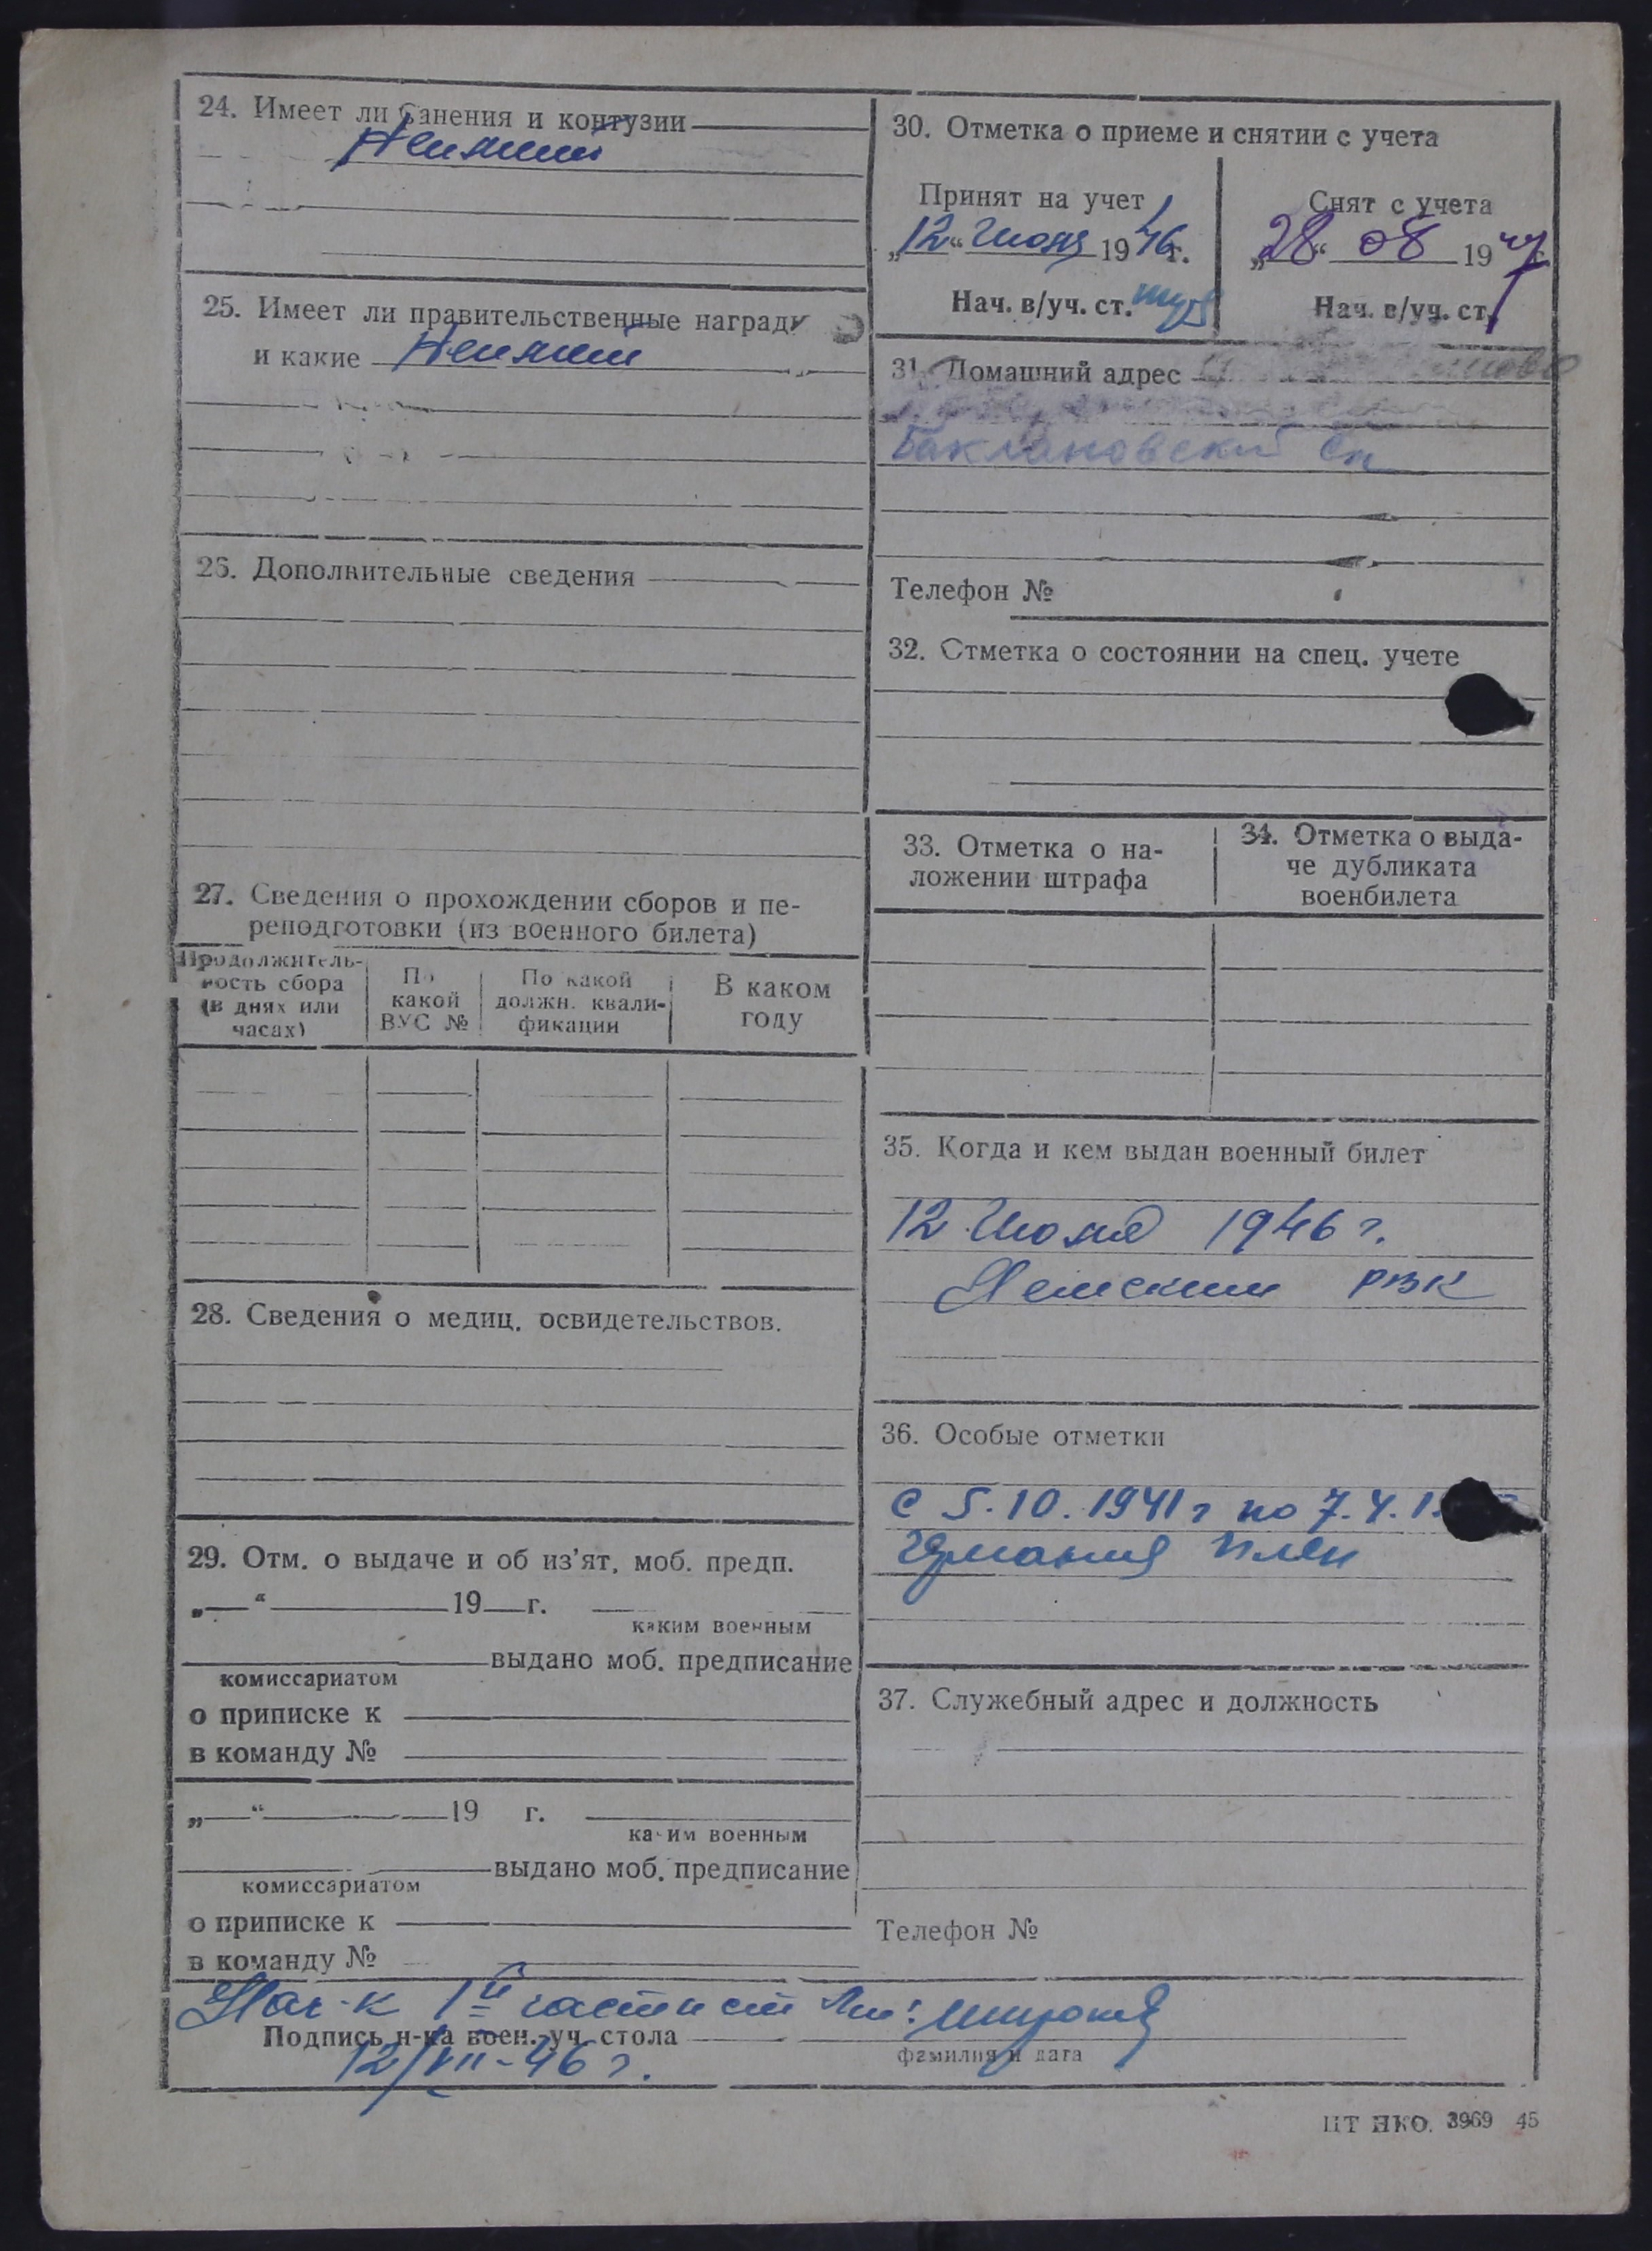 24. Имеет ли ранения и контузии
Не имеет
25. Имеет ли правительственные награды
и какие Не имеет
26. Дополнительные сведения
27. Сведения о прохождении сборов и пе-
реподготовки (из военного билета)
Продолжитель-
ность сбора
(в днях или
часах)
По
какой
ВУС №
По какой
должн. квали-
фикации
В каком
году
28. Сведения о медиц. освидетельствов.
29. Отм. о выдаче и об из'ят. моб. предп.
„ “ 19 г.
каким военным
выдано моб. предписание
комиссариатом
о приписке к
в команду №
„ “ 19 г.
каким военным
выдано моб. предписание
комиссариатом
о приписке к
в команду №
30. Отметка о приеме и снятии с учета
Принят на учет
„12“ Июня 1946г.
Нач. в/уч. ст.
Снят с учета
„28“ 08 1947
Нач. в/уч. ст.
31. Домашний адрес
Баклановский Сп
Телефон №
32. Отметка о состоянии на спец. учете
33. Отметка о на-
ложении штрафа
34. Отметка о выда-
че дубликата
военбилета
35. Когда и кем выдан военный билет
12 Июня 1946 г.
РВК
36. Особые отметки
с 5.10.1941 г по 7.4.1
Германия плен
37. Служебный адрес и должность
Телефон №
Нач-к 1й части ст Лт:
Подпись н-ка воен.-уч. стола
фамилия и дата
12/VII-46 г.
ЦТ НКО. 3969 45